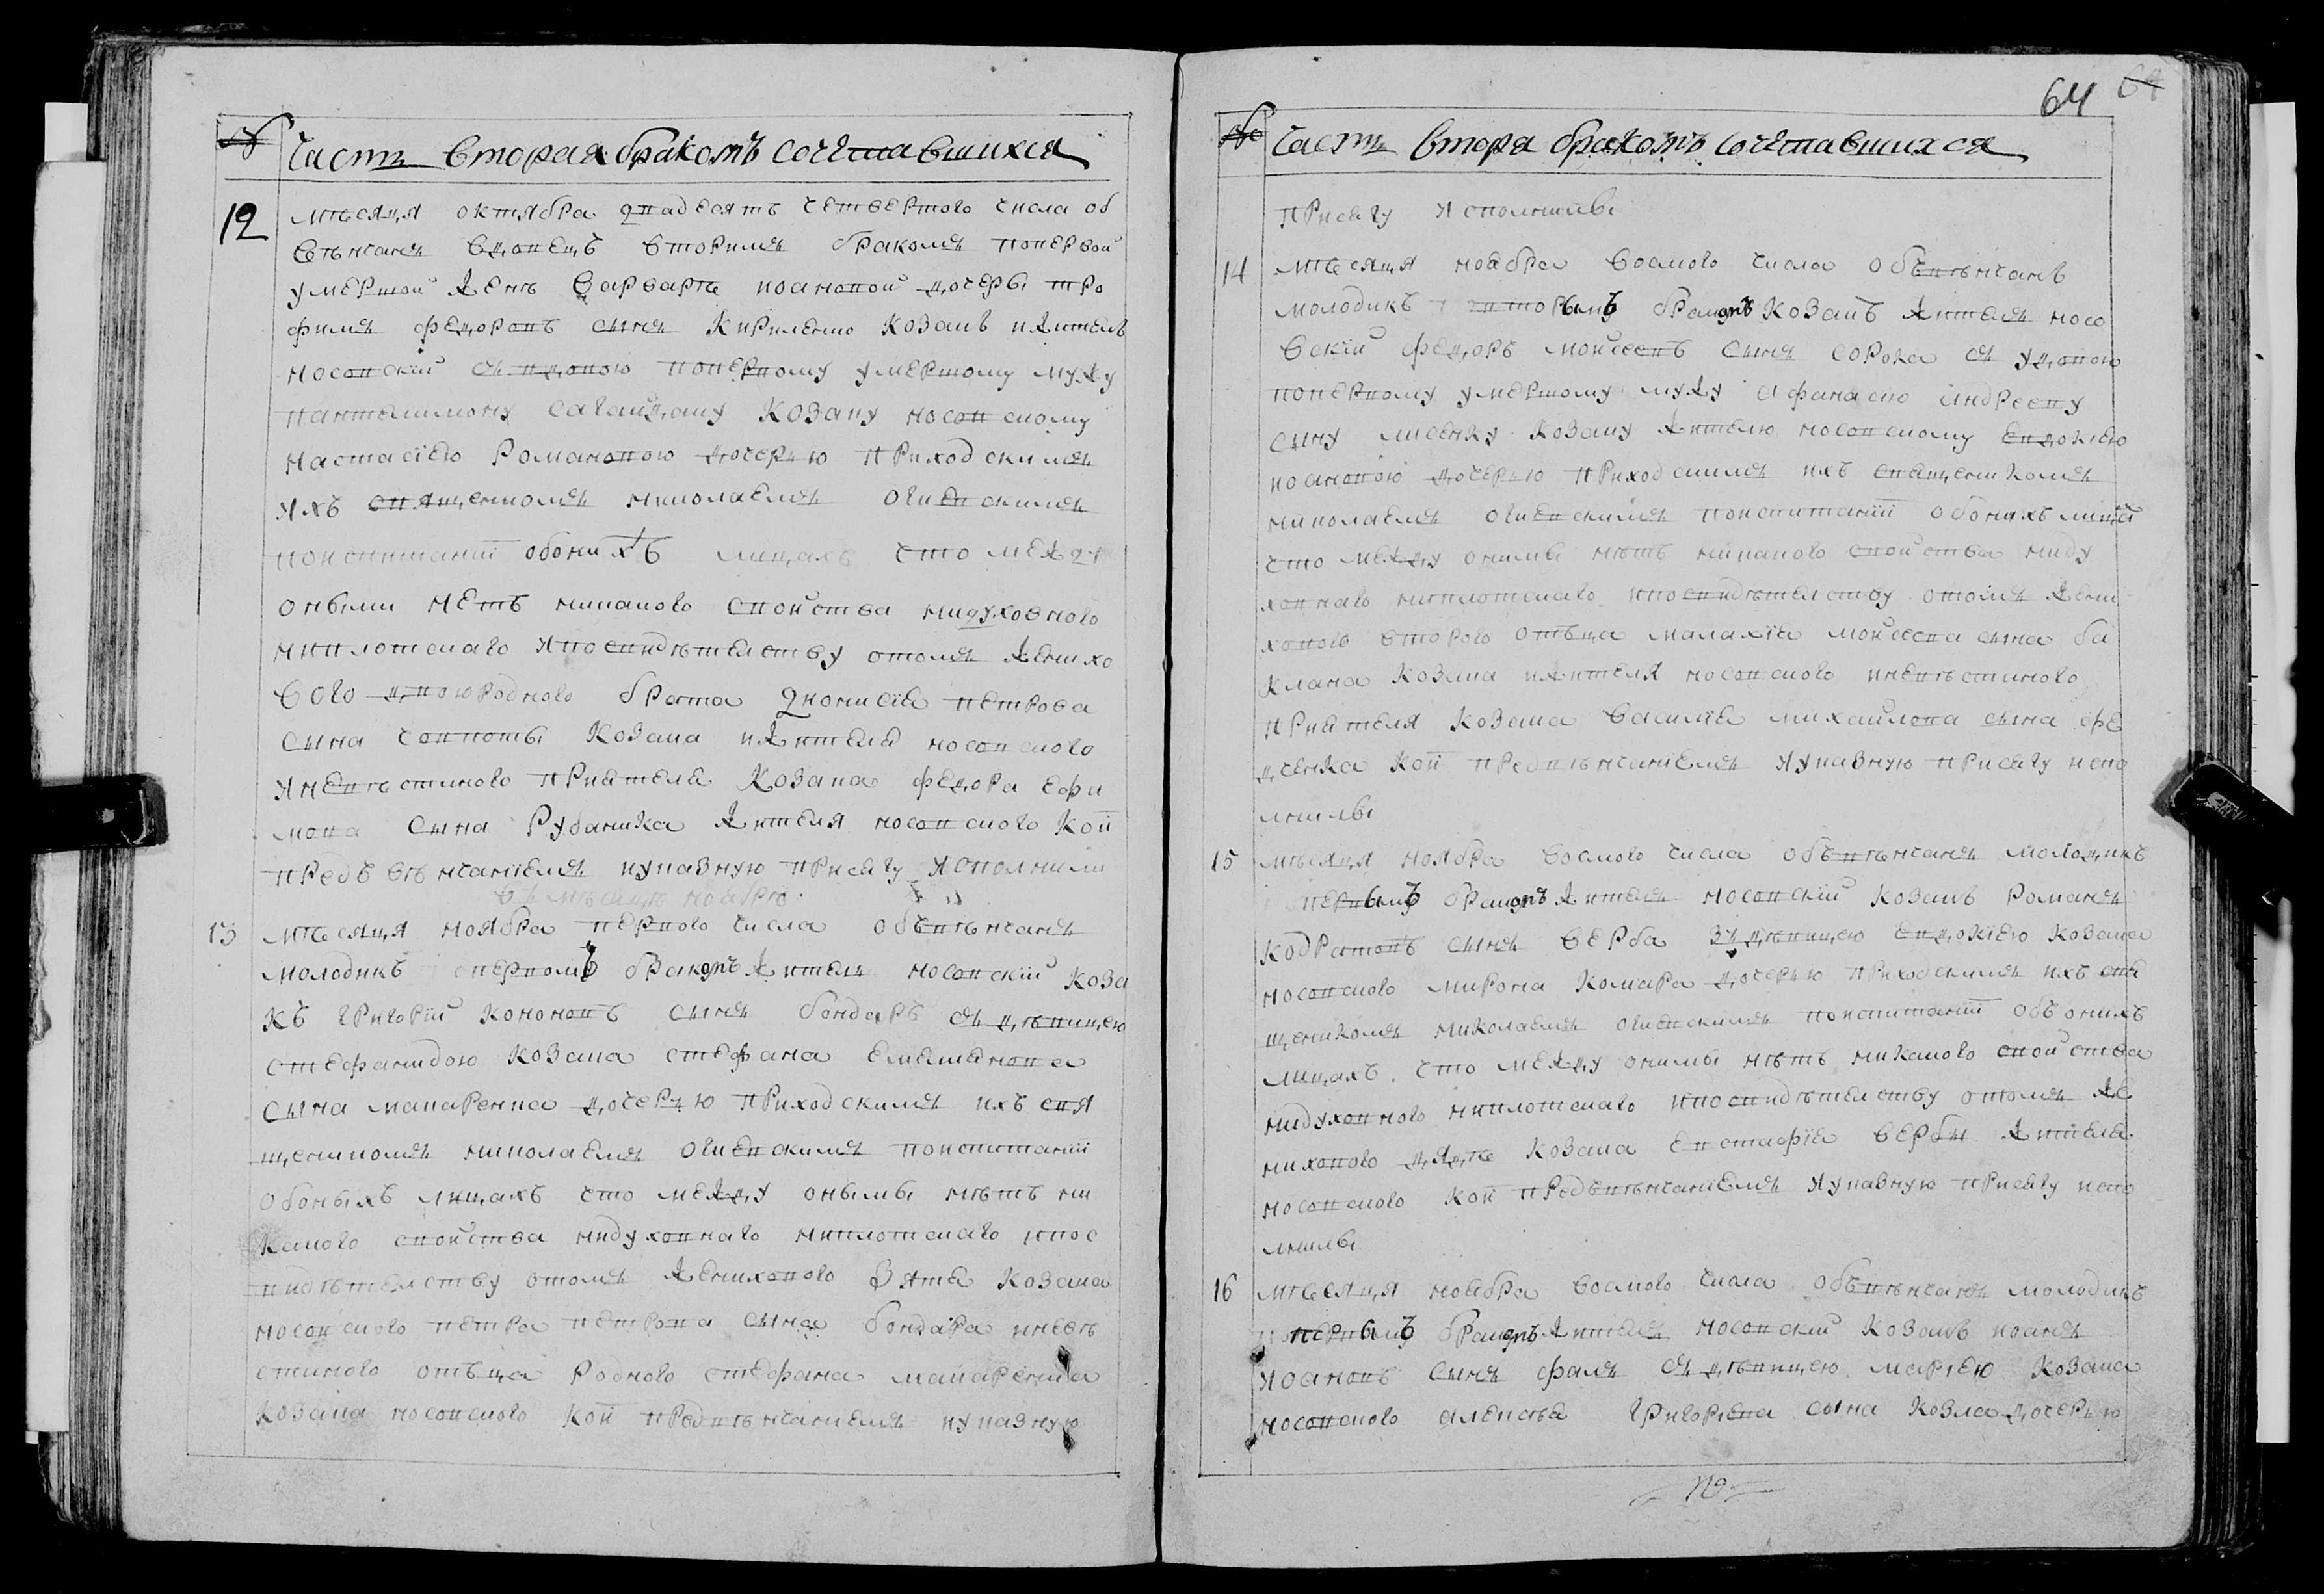 № Часть вторая бракомъ сочетавшихся
12 мѣсяця октября двадесятъ четвертого числа об
вѣнчанъ вдовецъ вторимъ бракомъ попервой
умершой женѣ Варварѣ иоановой дочеры тро
фимъ федоровъ сынъ Кириленко Козакъ ижитель
носовскій съ вдовою поперному умершому мужу
пантелимону сагайдаку Козаку носовскому
настасіею Романовою дочерью приходскимъ
ихъ священикомъ николаемъ огиевскимъ
повспитаніи обоихъ лицахъ что между
оными нетъ никакого свойства нидуховного
ниплотскаго ипосвидѣтелству отомъ жених­о
вого двоюродного брата дионисіе петрова
сына Козака ижителя носовского
иневѣстиного приятеля Козака федора ефи
мова сына Рубаника жителя носовского Кои
предъ вѣнчаніемъ иуказную присягу исполнили
въ мѣсяцѣ ноябрѣ
13 мѣсяця ноября первого числа обвѣнчанъ
молодикъ первомъ бракомъ житель носовскій коза
къ григорій кононовъ сынъ бондаръ съ дѣвицею
стефанидою козака стефана емелянова
сына макаренка дочерью приходскимъ ихъ свя
щеникомъ николаемъ огиевскимъ повспитаніи
обоныхъ лицахъ что между онымы нѣтъ ни
какого свойства нидуховнаго ниплотскаго ипос
видѣтелству отомъ женихового зятя козака
носовского петра петрова сына бондара иневѣ
стиного отьца родного стефана макаренка
козака носовского кои предвѣнчаниемъ иуказную
64 64
№ Часть втора бракомъ сочетавшихся
присягу исполнилы
14 мѣсяця ноября восмого числа обвѣнчанъ
молодикъ вторымъ бракомъ козакъ житель носо
вскій федоръ мойсеевъ сынъ сорока съ удовою
поперному умершому мужу афанасию андрееву
сыну лисенку козаку жителю носовскому евдокією
иоановою дочерью приходскимъ ихъ священикомъ
николаемъ огиевскимъ повспитаніи обонихъ лицъ
что между онимы нѣтъ никакого свойства ниду
ховнаго ниплотскаго ипосвидѣтелству отомъ жени
хового второго отьца малахія мойсеева сына ба
клана козака ижителя носовского иневѣстиного
приятеля козака василіе михайлова сына фе
дченка кои предвѣнчаніемъ иуказную присягу испо
лнилы
15 мѣсяця ноября восмого числа обвѣнчанъ молодикъ
первымъ бракомъ житель носовскій козакъ романъ
кодратовъ сынъ верба здѣвицею евдокією козака
носовского мирона комара дочерью приходскимъ ихъ свя
щеникомъ николаемъ огиевскимъ повспитаніи объ онихъ
лицахъ что между онимы нѣтъ никакого свойства
нидуховного ниплотскаго ипосвидѣтелству отомъ же
нихового дядѣ козака евстафія вербы жителя
носовского кои предвѣнчаніемъ иуказную присягу испо
лнилы
16 мѣсяця ноября восмого числа обвѣнчанъ молодикъ
первымъ бракомъ житель носовскій козакъ иоанъ
иоановъ сынъ фаль съ дѣвицею мариею козака
носовского алексѣя григориева сына козла дочерью